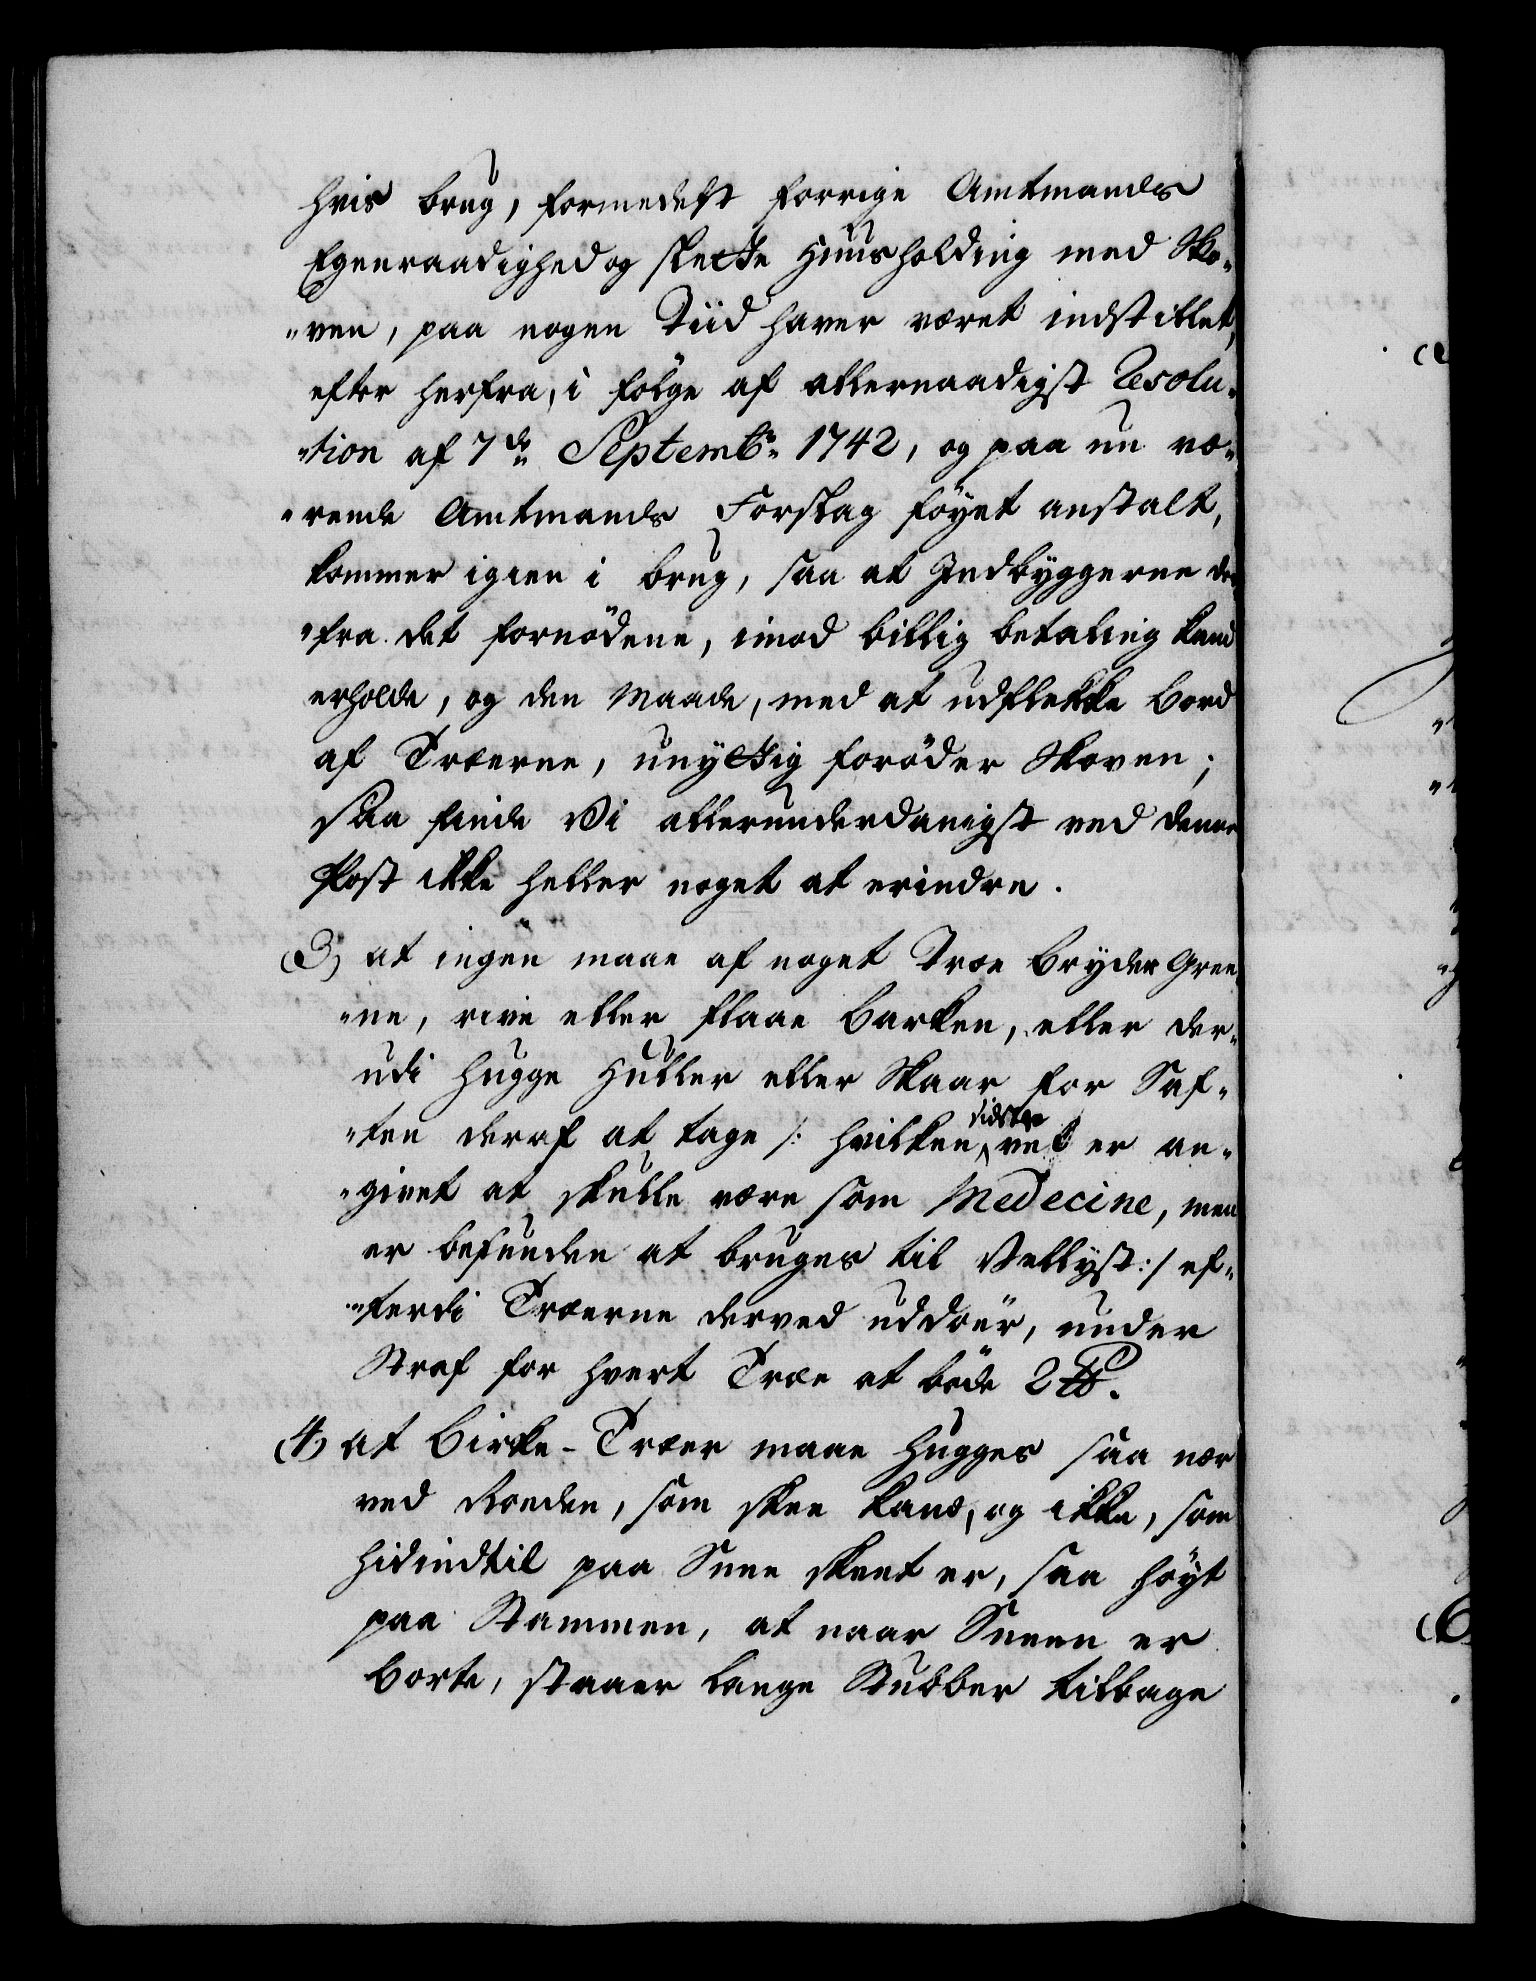 hvis brug, formedelst forrige Amtmands
Egenraadighed og slette Huusholding med Sko-
"ven, paa nogen Tiid haver været indstillet,
efter herfra, i fölge af allernaadigst Resolu-
"tion af 7de Septembr 1742, og paa nu væ-
"rende Amtmands Forslag föyet anstalt,
kommer igien i brug, saa at Indbyggerne der
"fra det fornödene, imod billig betaling kand
erholde, og den Maade, med at udflekke Bord
af Træerne, unyttig foröder Skoven;
saa finde Vi allerunderdanigst ved denne
Post ikke heller noget at erindre.
(3) at ingen maae af noget Træe bryder Gree
"ne, rive eller flaae Barken, eller der-
udi hugge Huller eller Skaar for Saf-
"ten deraf at tage /: hvilken sidste vel er an-
"givet at skulle være som Medecine, men
er befunden at bruges til Vellyst :/ ef-
"terdi Træerne derved uddöer, under
Straf for hvert Træe at böde 2
(4) at Birke-Træer maae hugges saa nær
ved Roeden, som skee kand, og ikke, som
hidindtil paa Snee skeet er, saa höyt
paa Stammen, at naar Sneen er
borte, staaer lange Stubber tilbage